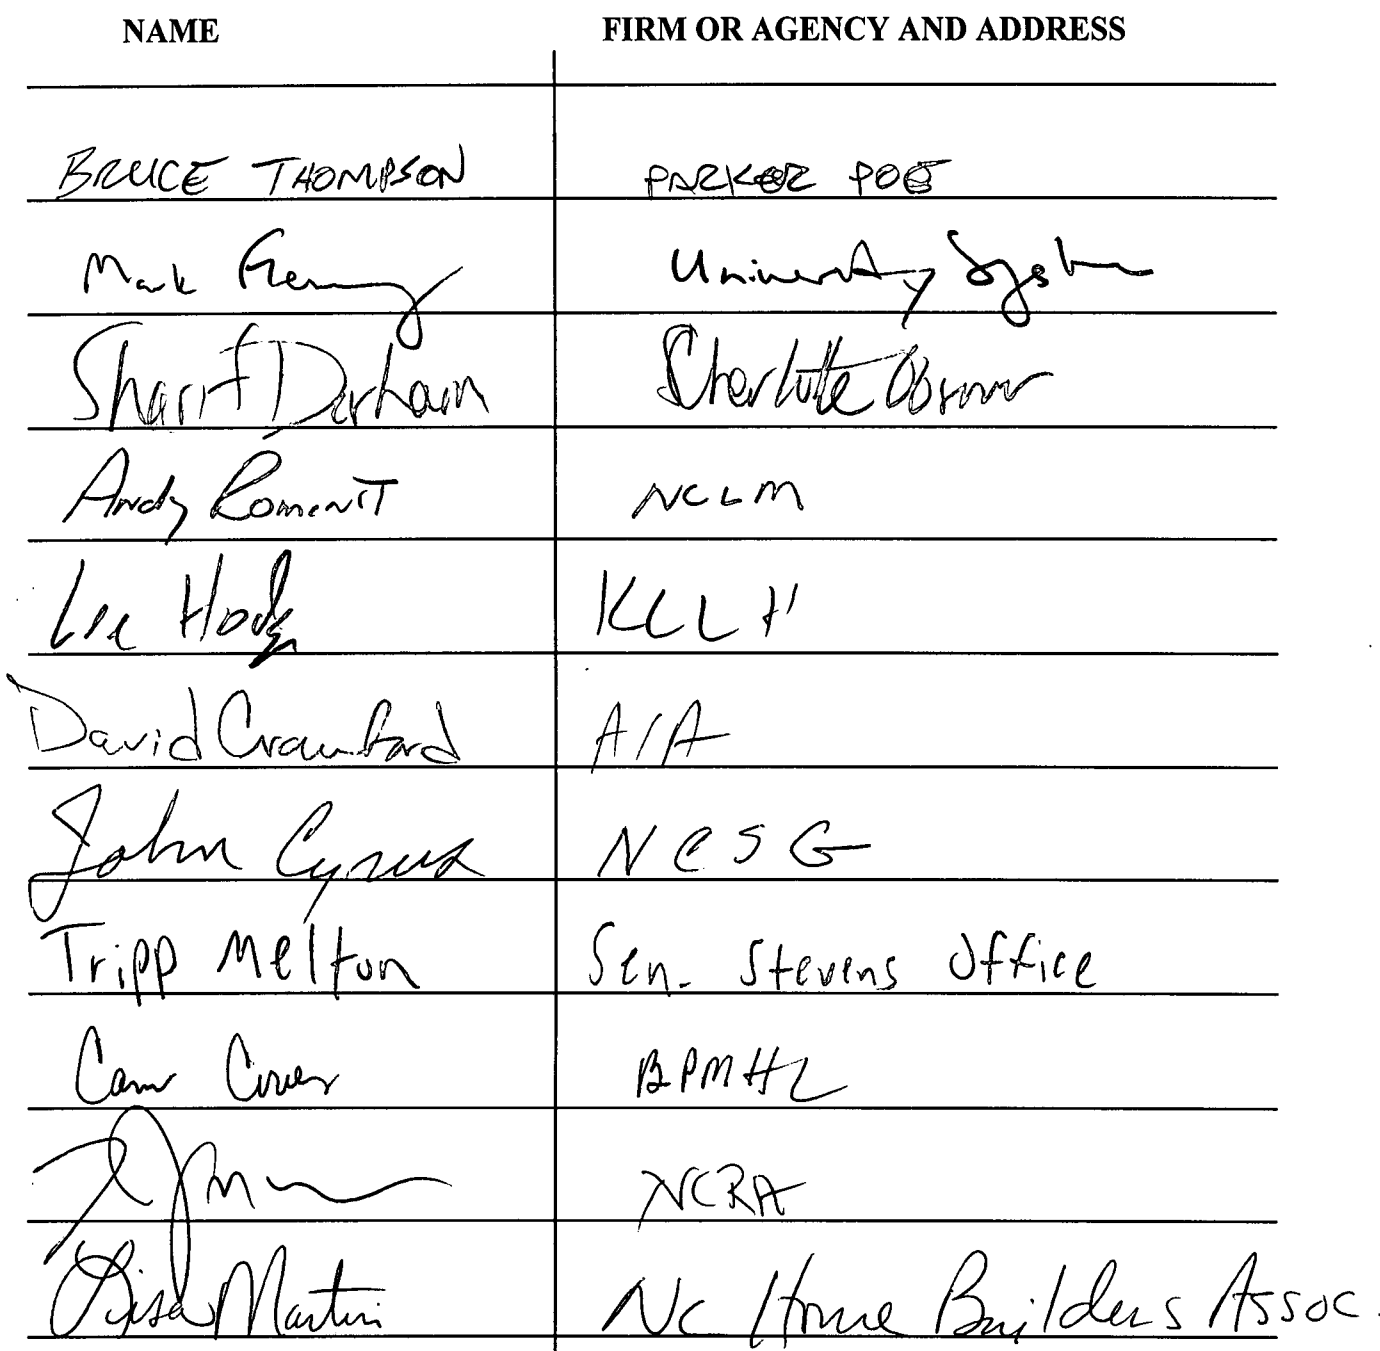 NAME FIRM OR AGENCY AND ADDRESS
BRUCE THOMPSON PARKER POE
Mark Fleming University System
Sharif Durham Charlotte Observer
Andy Romenet NCLM
Lee Hodge KCLH
David Crawford AIA
John Cyrus NCSG
Tripp Melton Sen. Stevens Office
Cam Cover BPMHL
NCRA
Lisa Martin NC Home Builders Assoc.